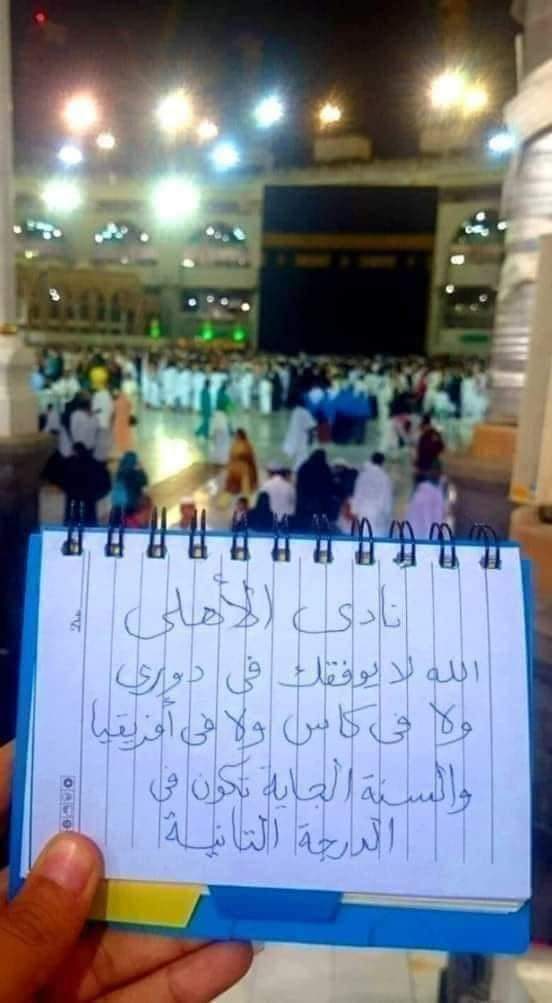 نادى الأهلى
الله لا يوفقك فى دورى
ولا فى كاس ولا فى أفريقيا
والسنة الجاية تكون فى
الدرجة التانية